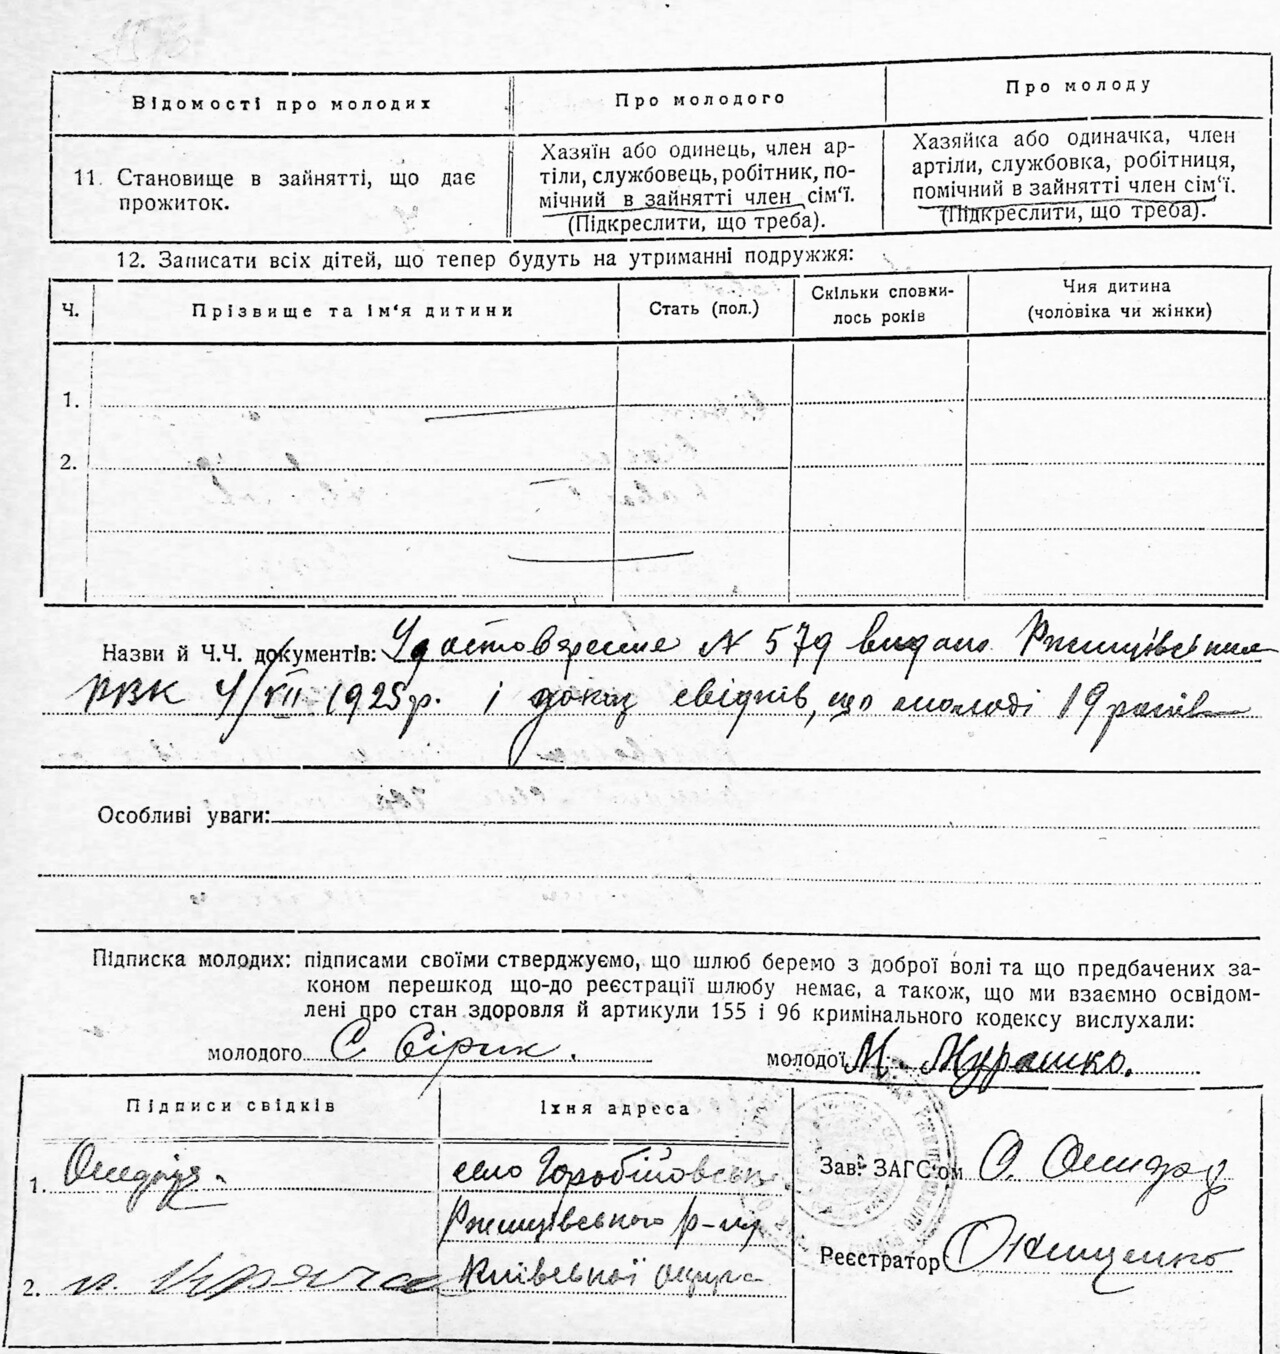 Відомості про молодих
Про молодого
Про молоду
11. Становище в зайнятті, що дає
прожиток.
Хазяїн або одинець, член ар-
тіли, службовець, робітник, по-
мічний в зайнятті член сім'ї.
(Підкреслити, що треба).
Хазяйка або одиначка, член
артіли, службовка, робітниця,
помічний в зайнятті член сім'ї.
(Підкреслити, що треба).
12. Записати всіх дітей, що тепер будуть на утриманні подружжя:
Ч.
Прізвище та ім'я дитини
Стать (пол.)
Скільки сповни-
лось років
Чия дитина
(чоловіка чи жінки)
1.
2.
Назви й Ч.Ч. документів: Удостоверение № 579 видано Ржищівським
РВК 4/VII 1925 р. і доказ свідків, що молоді 19 років
Особливі уваги:
Підписка молодих: підписами своїми стверджуємо, що шлюб беремо з доброї волі та що предбачених за-
коном перешкод що-до реєстрації шлюбу немає, а також, що ми взаємно освідом-
лені про стан здоровля й артикули 155 і 96 кримінального кодексу вислухали:
молодого С. Сірик. молодої М. Мурашко.
Підписи свідків
Їхня адреса
1.
село Горобіївськ
Ржищівського р-ну
2.
Київської округи
Зав. ЗАГС'ом О.
Реєстратор Онищенко